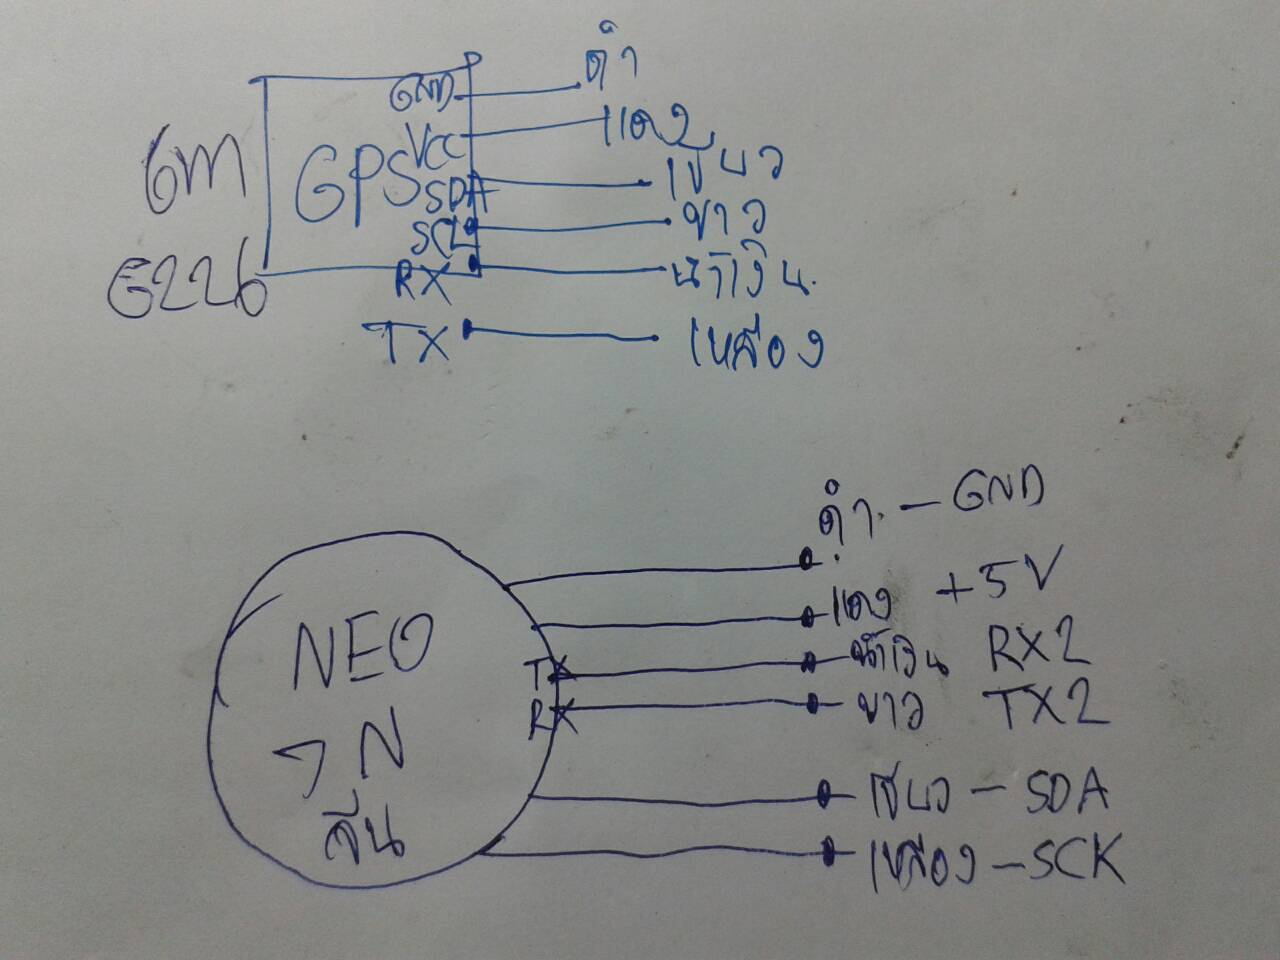 GND ดำ
VCC แดง
GPS
SDA เขียว
SCL ขาว
RX น้ำเงิน
TX เหลือง
ดำ - GND
แดง +5V
NEO
TX น้ำเงิน RX2
RX ขาว TX2
7N
จีน
เขียว - SDA
เหลือง - SCK